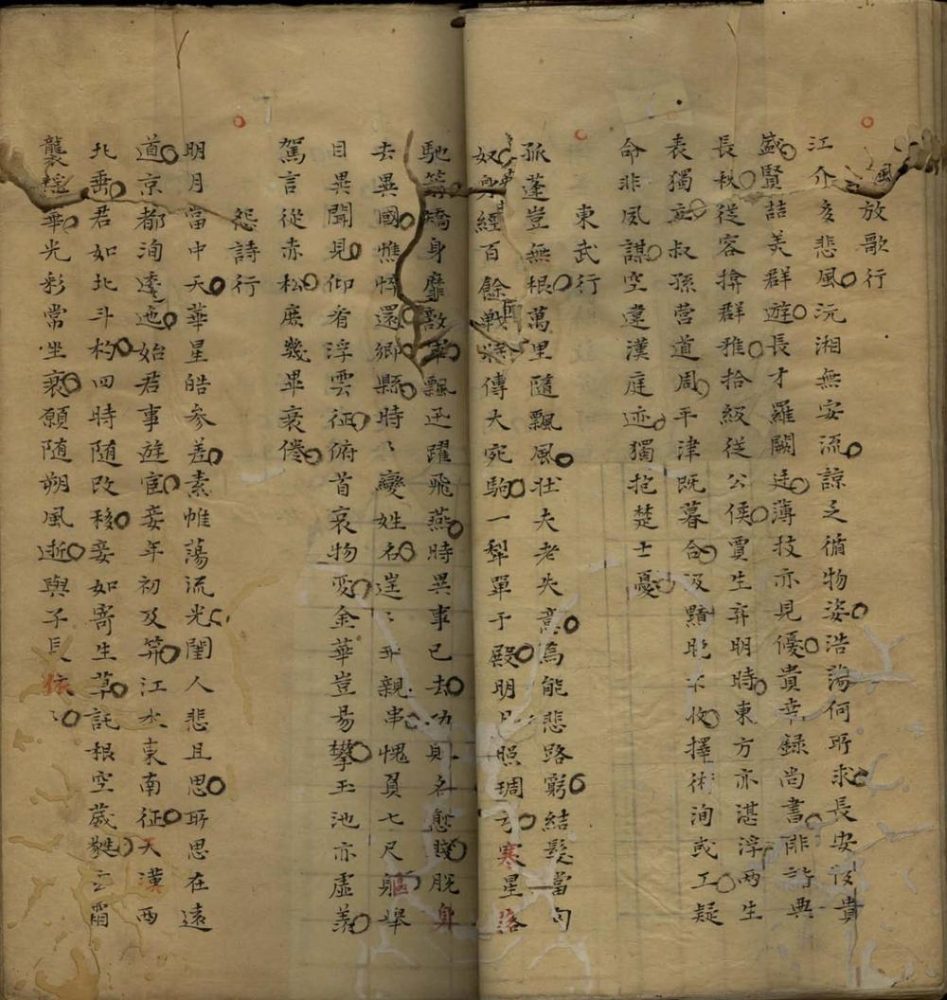 風放歌行
江介多悲風沅湘無安流諒乏循物姿浩蕩何所求長安後貴
盛賢喆美群遊長才羅闕廷薄技亦見優貴幸錄尚書俳詩典
長秋從容擠群雅拾級從公侯賈生弃明時東方亦湛浮兩生
表獨立叔孫营道周平津既暮合汲黯晚不收擇術洵或工疑
命非風謀空違漢庭迹獨抱楚士憂
東武行
孤蓬豈無根萬里隨飄風壮夫老失意烏能悲路窮結髮當匈
奴經百餘戰將傳大宛駒一犁單于殿明月照琱弓寒星落
馳箭矯身靡敵軍飄迅躍飛燕時異事已去功則名愈賤脫身
去異國憔悴還鄉縣時〻變姓名遑〻干親串愧負七尺軀舉
目異聞見仰看浮雲征俯首哀物变金華豈易攀玉池亦虛羨
駕言從赤松庶幾畢衰倦
怨詩行
明月當中天華星皓參差素帷蕩流光閨人悲且思所思在遠
道京都洵逶迤始君事遊宦妾年初及笄江水東南征天漢西
北垂君如北斗杓四時随改移妾如寄生草託根空葳蕤玄霜
襲穠華光彩常坐衰願随朔風逝與子長猗〻